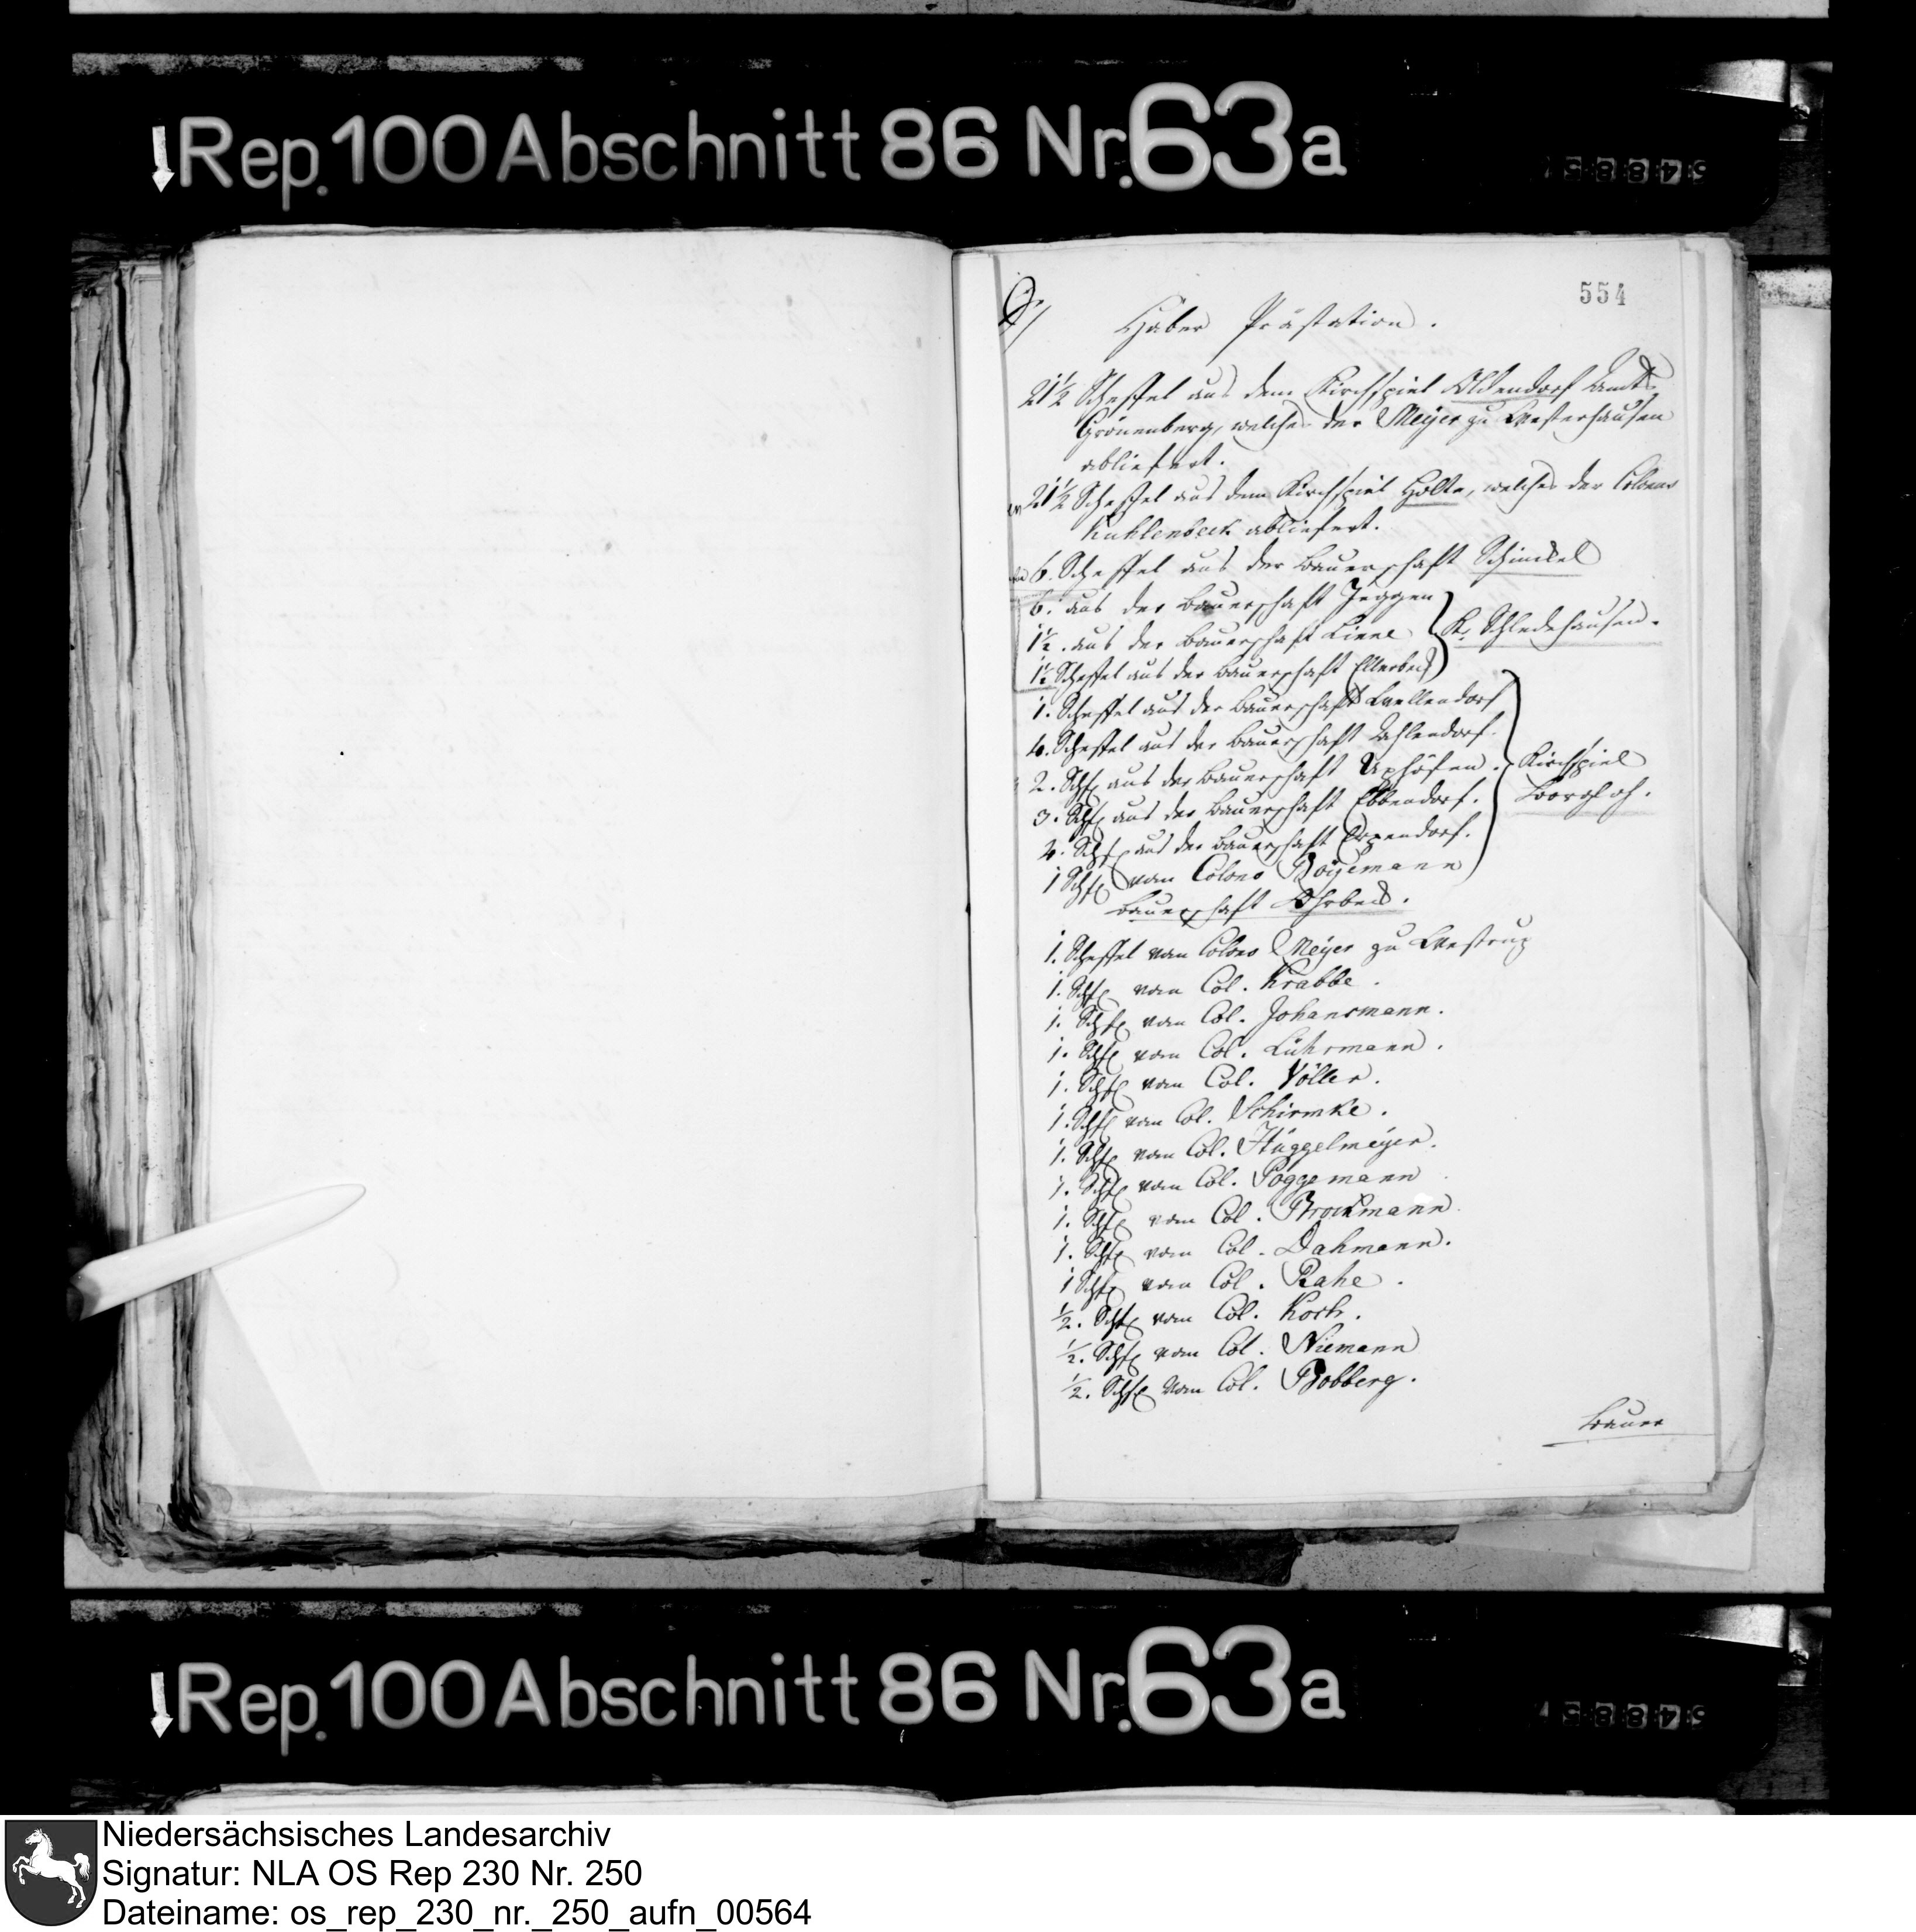 Rep. 100 Abschnitt 86 Nr. 63a
554
Haber Prästation.
21½ Scheffel aus dem Kirchspiel Oldendorf Amts
Grönenberg, welche der Meÿer zu Westerhausen
abliefert.
21½ Scheffel aus dem Kirchspiel Holte, welche der Colonus
Kuhlenbeck abliefert.
6. Scheffel aus der Bauerschaft Schinckel
6. aus der Bauerschaft Jeggen
1½. aus der Bauerschaft Linne
K. Schledehausen.
1½ Scheffel aus der Bauerschaft Ellerbeck
1. Scheffel aus der Bauerschaft Wellendorf
4. Scheffel aus der Bauerschaft Uhlendorf.
2. Schfl aus der Bauerschaft Uphöfen.
Kirchspiel
3. Schfl aus der Bauerschaft Ebbendorf.
Borgloh.
4. Schfl aus der Bauerschaft Eppendorf.
1 Schfl vom Colono Boÿemann
Bauerschaft Ohrbeck.
1. Scheffel vom Colono Meÿer zu Westrup
1. Schfl vom Col. Krabbe.
1. Schfl vom Col. Johansmann.
1. Schfl vom Col. Lührmann.
1. Schfl vom Col. Völler.
1. Schfl vom Col. Schirmke.
1. Schfl vom Col. Hüggelmeÿer.
1. Schfl vom Col. Poggemann
1. Schfl vom Col. Brockmann.
1. Schfl vom Col. Dahmann.
1 Schfl vom Col. Rahe.
½. Schfl vom Col. Koch.
½. Schfl vom Col. Niemann
½. Schfl vom Col. Bobberg.
Bauer
Rep. 100 Abschnitt 86 Nr. 63a
Niedersächsisches Landesarchiv
Signatur: NLA OS Rep 230 Nr. 250
Dateiname: os_rep_230_nr._250_aufn_00564